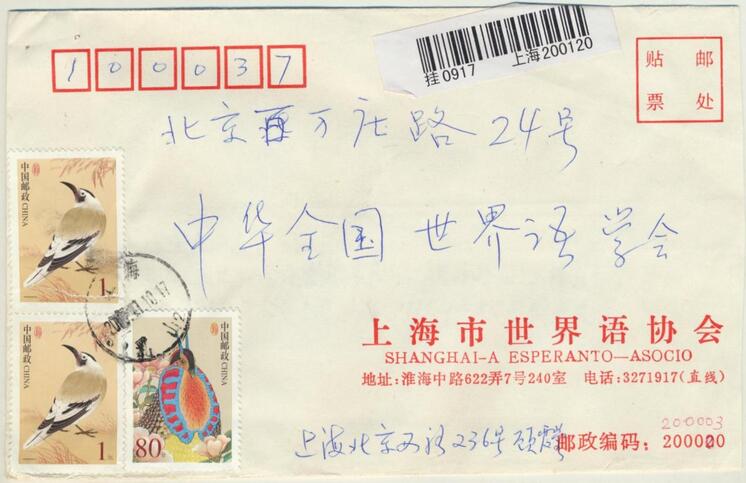 100037
挂0917 上海200120
贴 邮
票 处
北京百万庄路24号
中华全国世界语学会
中国邮政 CHINA
1元
中国邮政 CHINA
1元
中国邮政 CHINA
80分
上海
上海市世界语协会
SHANGHAI-A ESPERANTO—ASOCIO
地址:淮海中路622弄7号240室 电话:3271917(直线)
200003
上海北京西路236号
邮政编码:200020